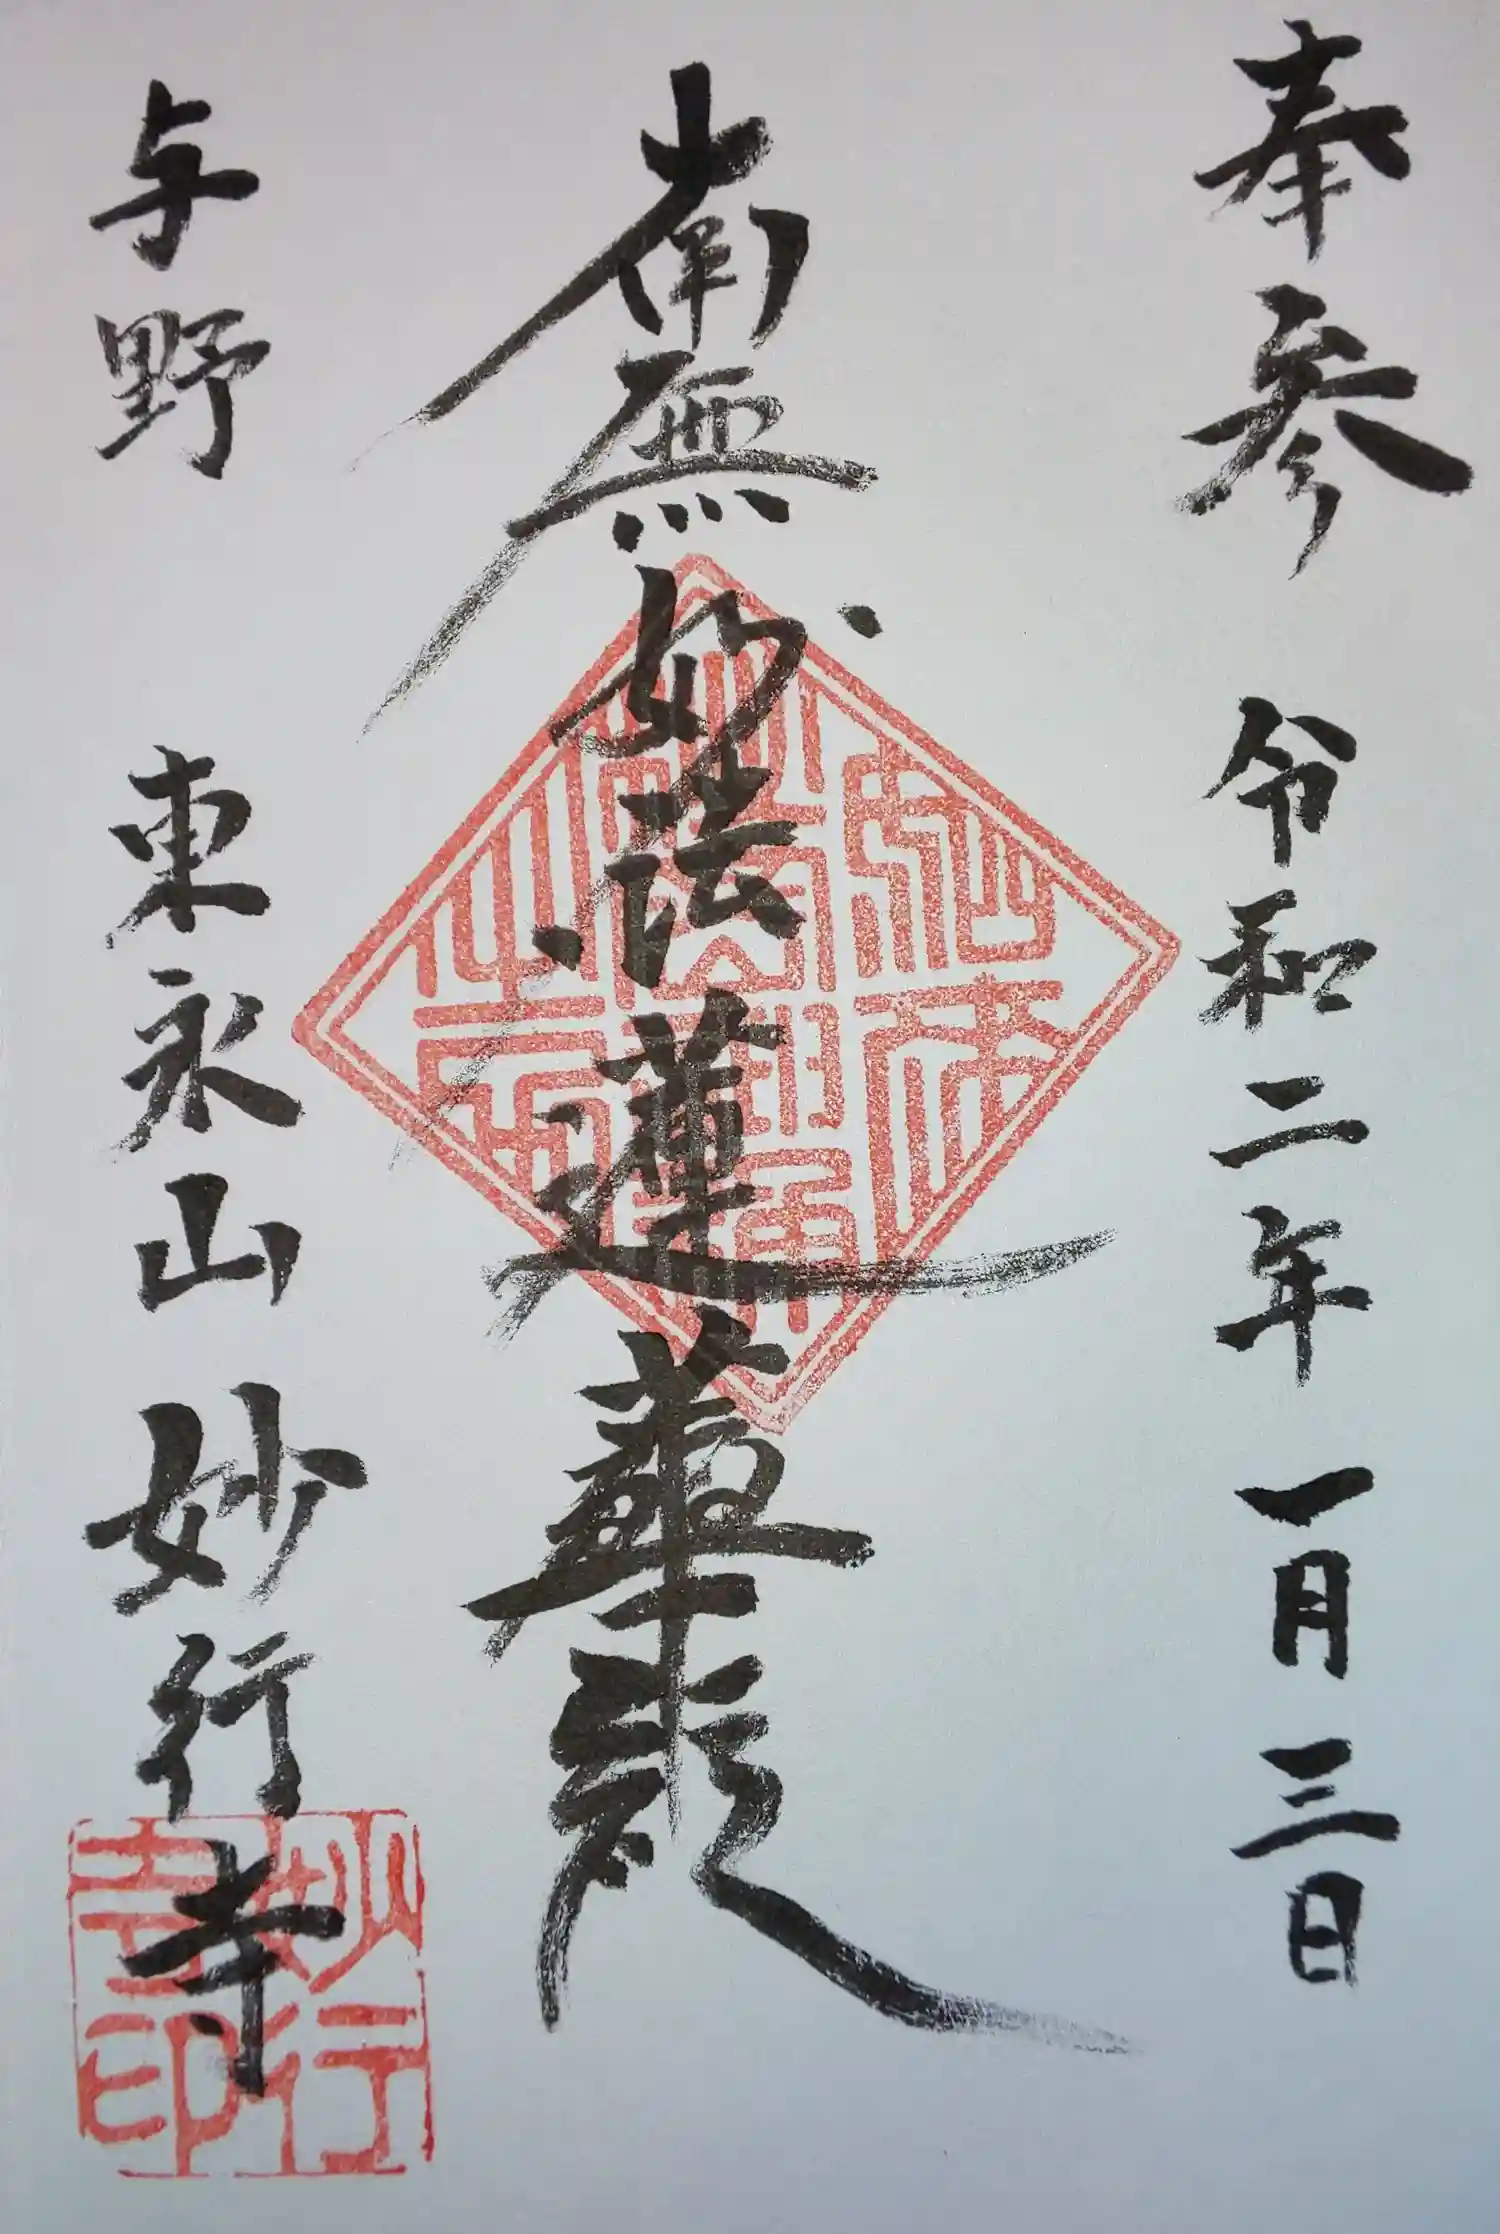 奉参 令和二年一月三日
南無妙法蓮華経
与野 東永山 妙行寺
妙行寺印